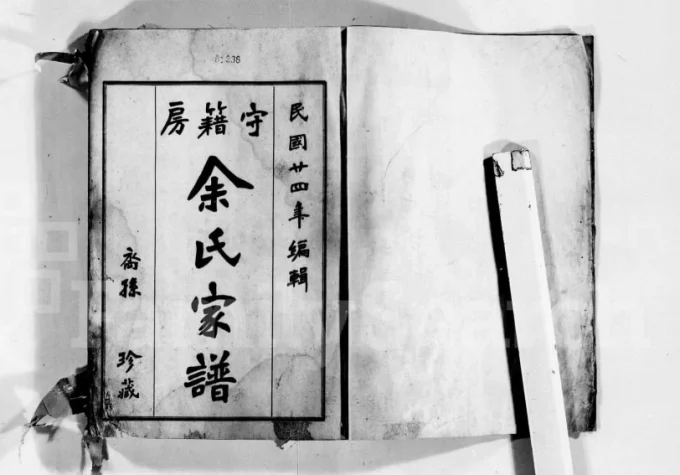 民國廿四年編輯
守籍房
余氏家譜
裔孫 珍藏
FamilySearch